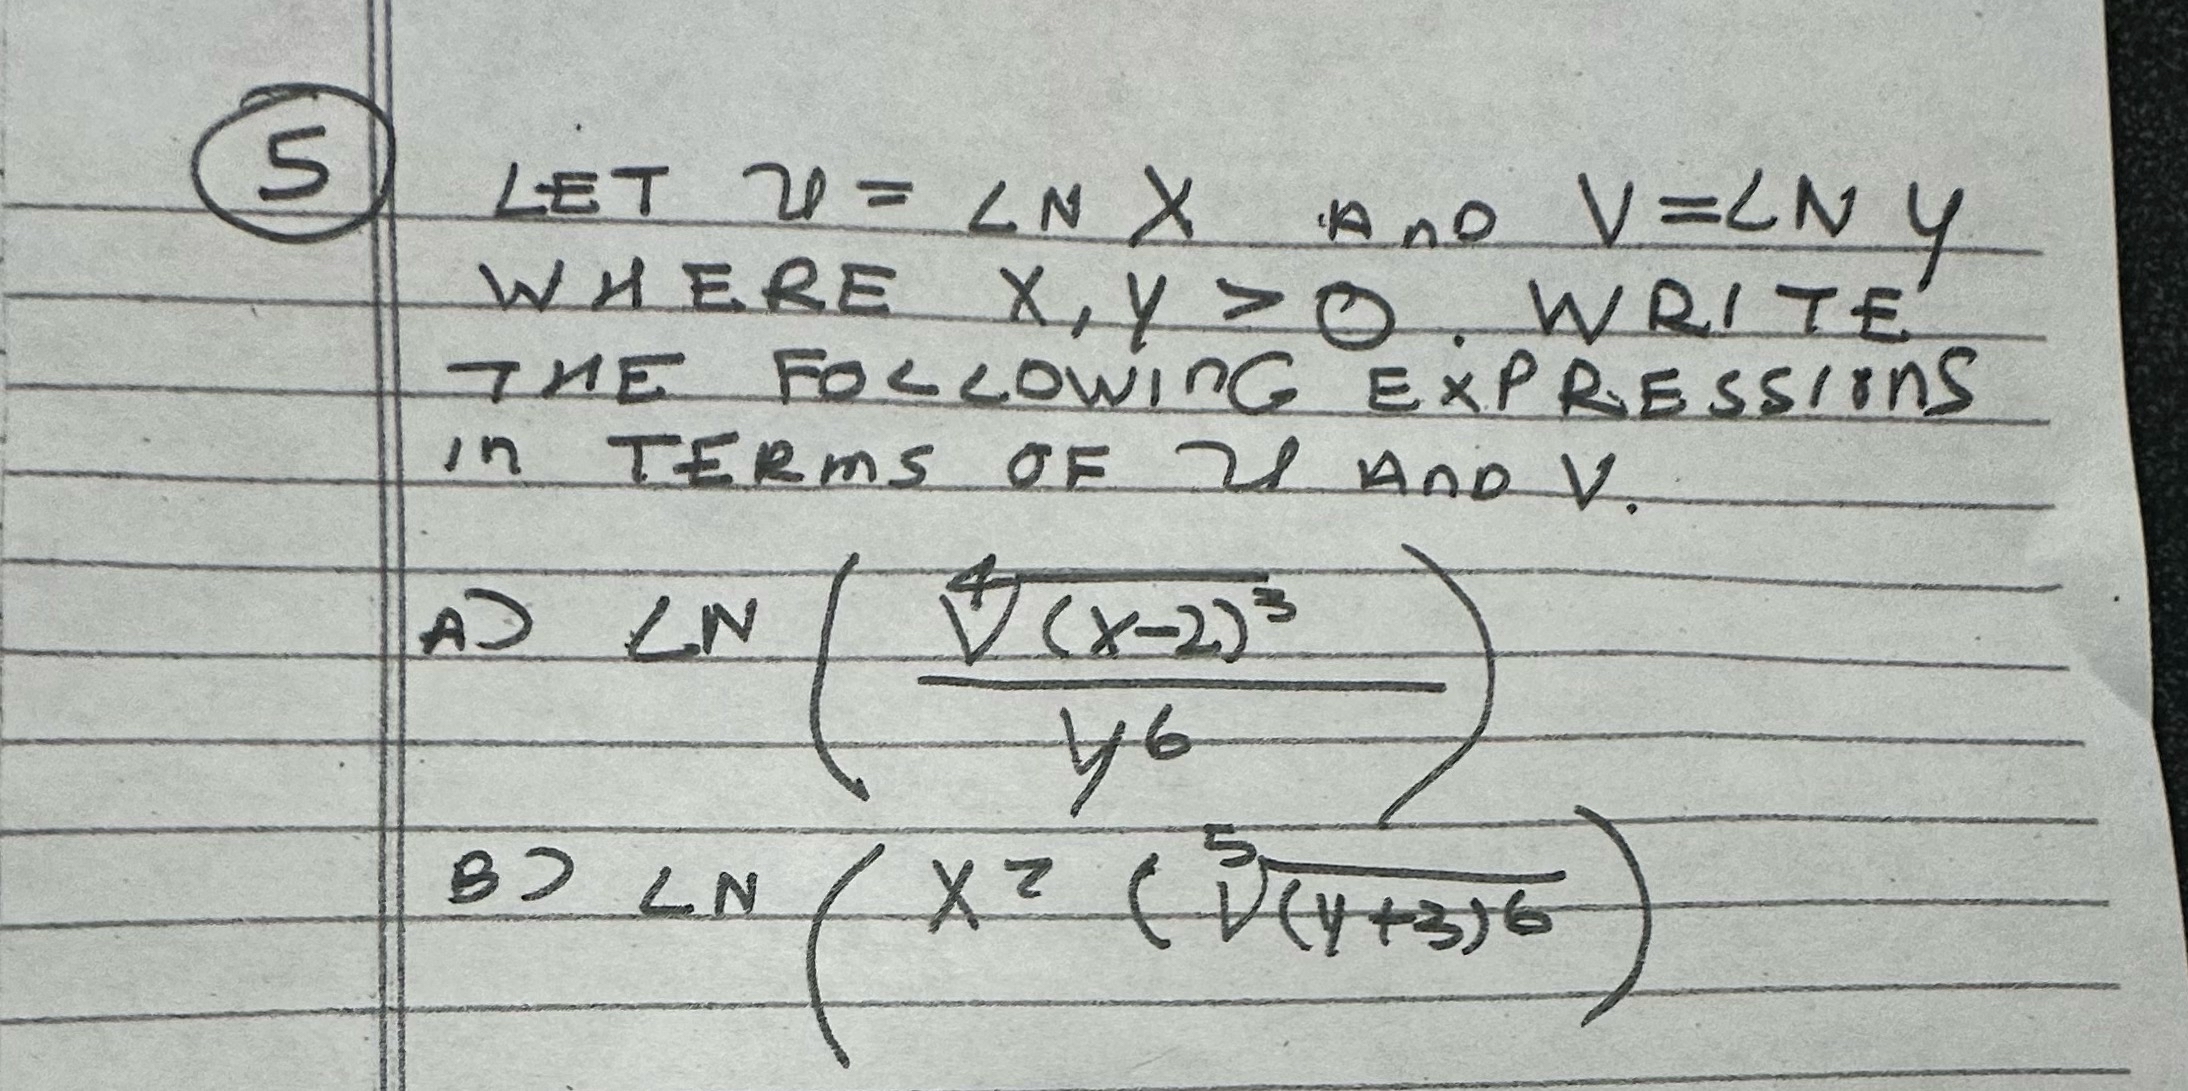 5 LET u = LN X AND V = LN y
WHERE X, y > 0. WRITE
THE FOLLOWING EXPRESSIONS
in TERMS OF u AND V.
A) LN ( ∜(x-2)³ / y⁶ )
B) LN ( X² ( ⁵√(y+3)6 )